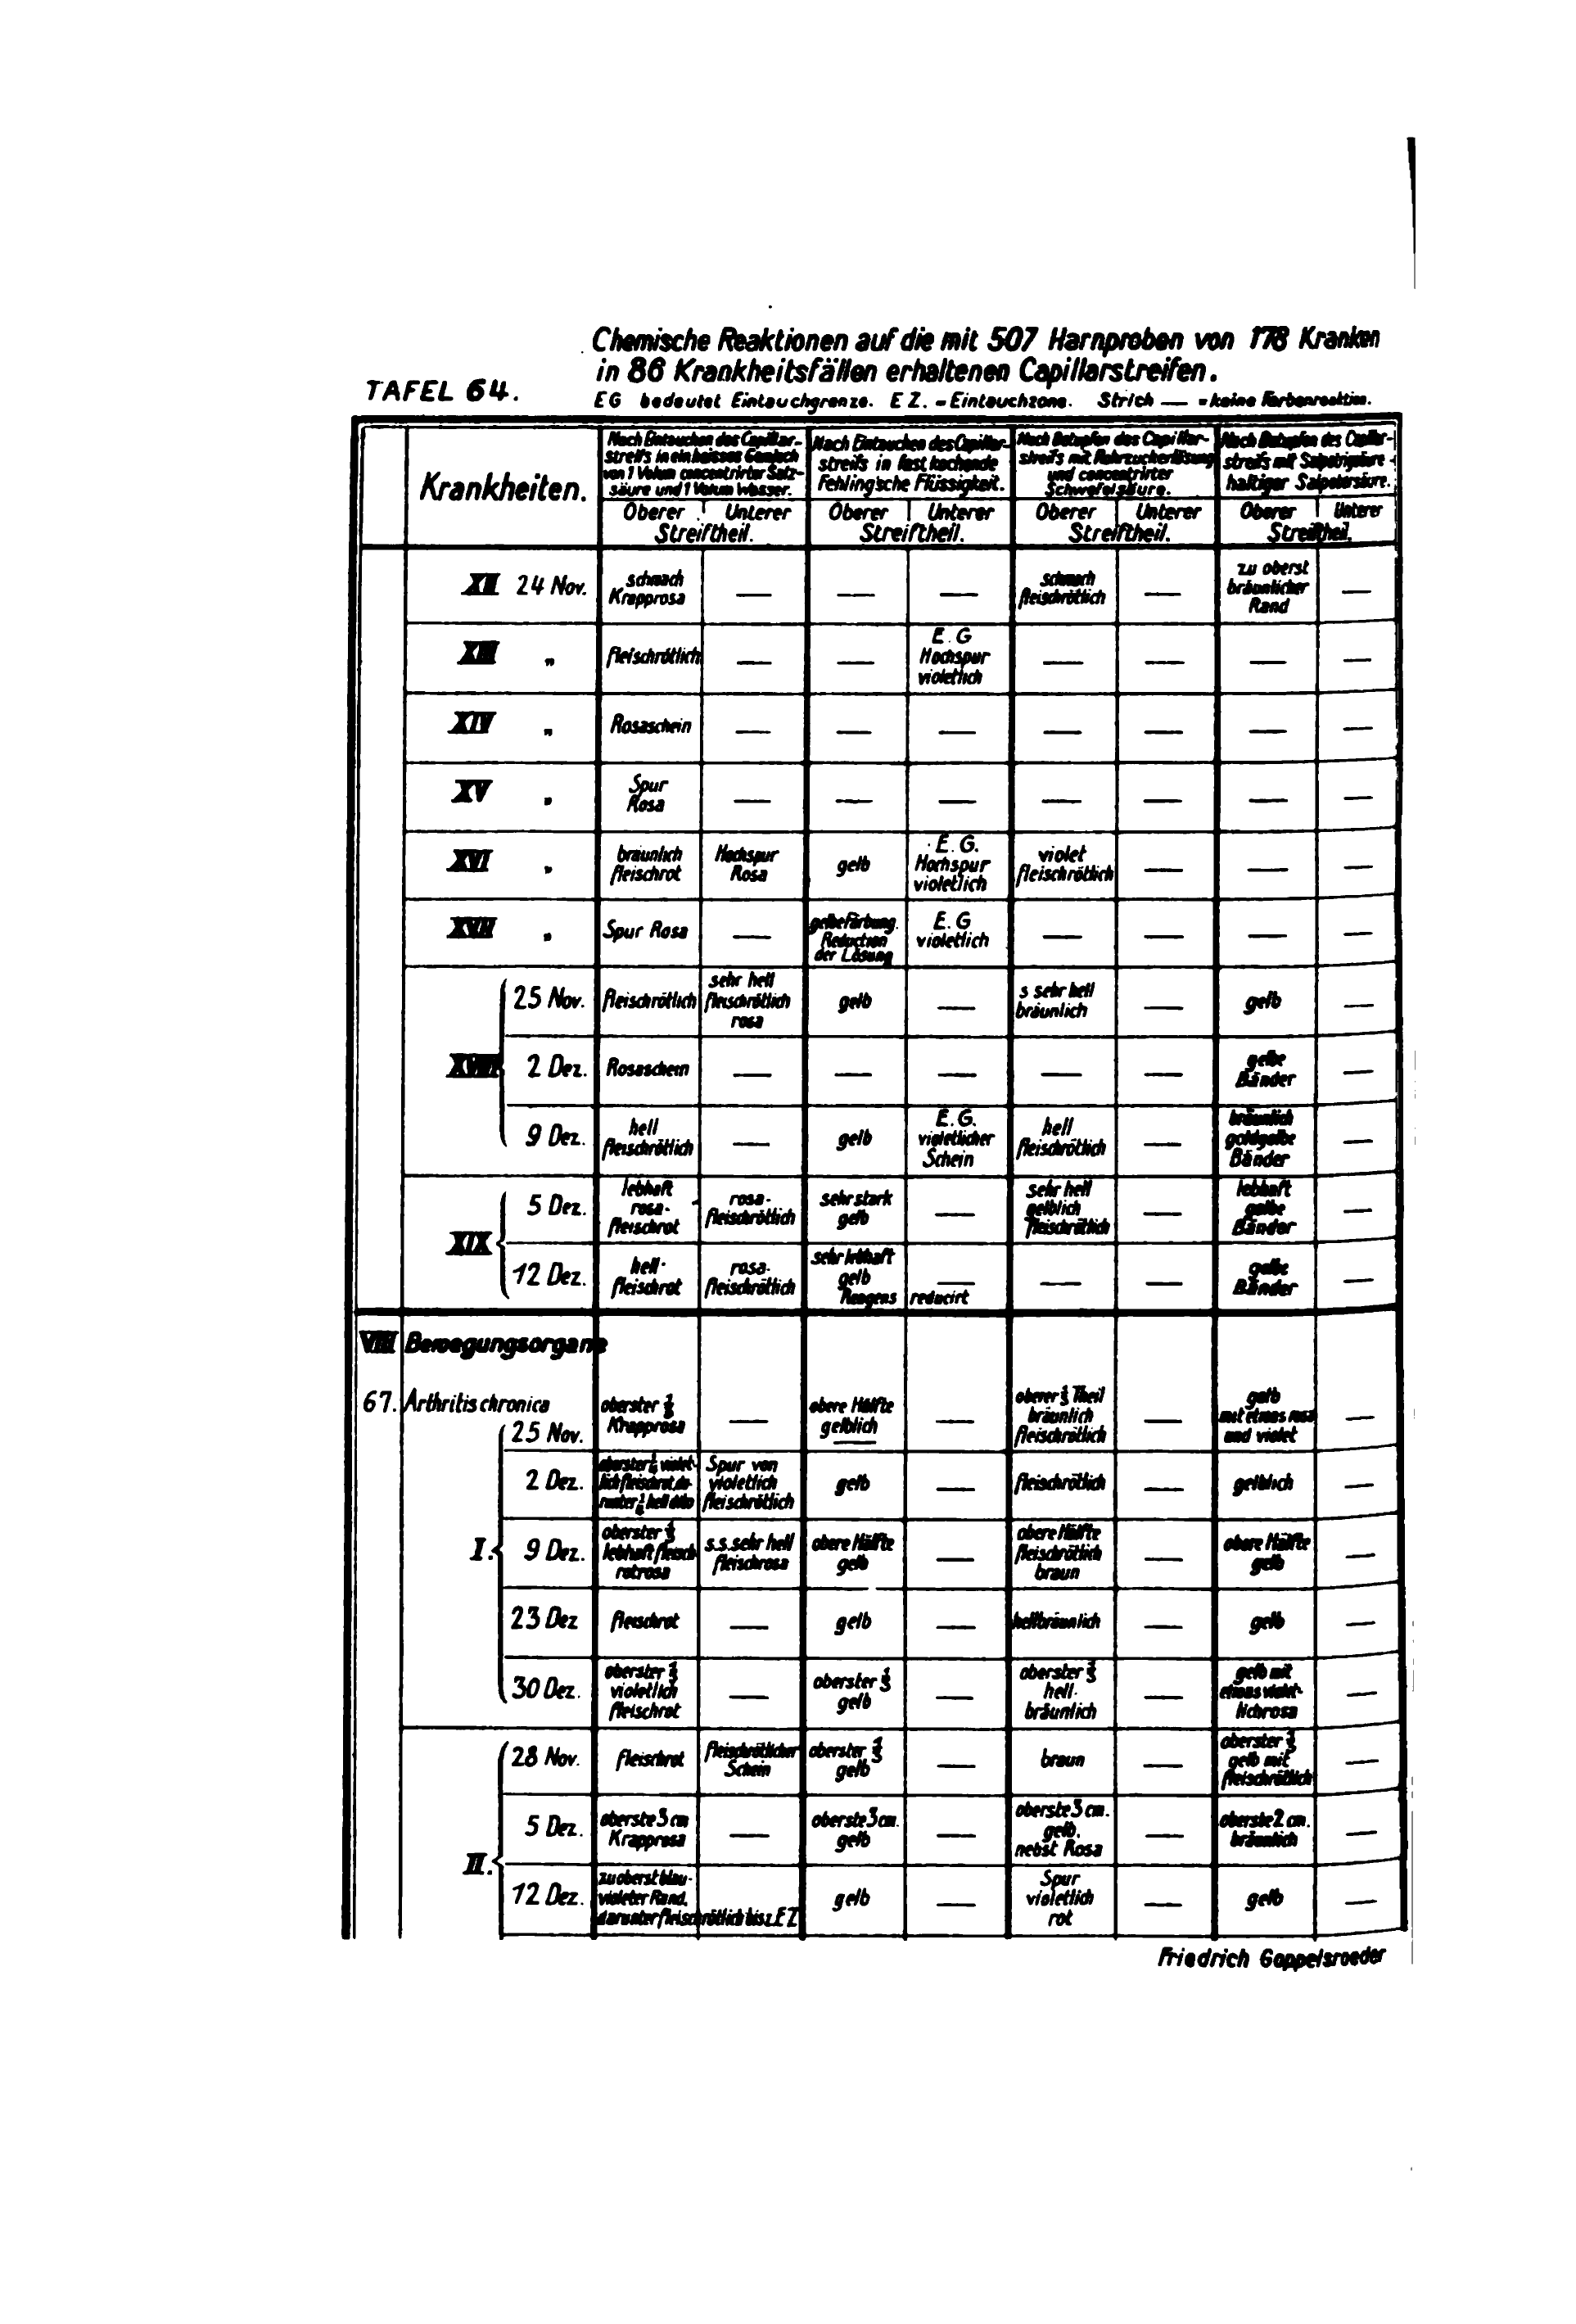 Chemische Reaktionen auf die mit 507 Harnproben von 178 Kranken
in 86 Krankheitsfällen erhaltenen Capillarstreifen.
TAFEL 64.
EG bedeutet Eintauchgrenze. E Z. = Eintauchzone. Strich — = keine Farbenreaktion.
Krankheiten.
Nach Eintauchen des Capillar-
streifs in ein heisses Gemisch
von 1 Volum concentrirter Salz-
säure und 1 Volum Wasser.
Nach Eintauchen des Capillar-
streifs in fast kochende
Fehling'sche Flüssigkeit.
Nach Betupfen des Capillar-
streifs mit Rohrzuckerlösung
und concentrirter
Schwefelsäure.
Nach Betupfen des Capillar-
streifs mit Salpetrigsäure-
haltiger Salpetersäure.
Oberer Unterer Oberer Unterer Oberer Unterer Oberer Unterer
Streiftheil. Streiftheil. Streiftheil. Streiftheil.
XII 24 Nov.
schwach
Krapprosa
— — —
schwach
fleischrötlich
—
zu oberst
bräunlicher
Rand
—
XIII „
fleischrötlich
— —
E. G
Hochspur
violetlich
— — — —
XIV „
Rosaschein
— — — — — — —
XV „
Spur
Rosa
— — — — — — —
XVI „
bräunlich
fleischrot
Hochspur
Rosa
gelb
E. G.
Hochspur
violetlich
violet
fleischrötlich
— — —
XVII „
Spur Rosa
—
gelbe Färbung.
Reduction
der Lösung
E. G
violetlich
— — — —
XVIII
25 Nov.
fleischrötlich
sehr hell
fleischrötlich
rosa
gelb
—
s sehr hell
bräunlich
—
gelb
—
2 Dez.
Rosaschein
— — — — —
gelbe
Bänder
—
9 Dez.
hell
fleischrötlich
—
gelb
E. G.
violetlicher
Schein
hell
fleischrötlich
—
bräunlich
goldgelbe
Bänder
—
XIX
5 Dez.
lebhaft
rosa-
fleischrot
rosa-
fleischrötlich
sehr stark
gelb
—
sehr hell
gelblich
fleischrötlich
—
lebhaft
gelbe
Bänder
—
12 Dez.
hell-
fleischrot
rosa-
fleischrötlich
sehr lebhaft
gelb
Reagens reducirt
— — —
gelbe
Bänder
—
VIII Bewegungsorgane
67. Arthritis chronica
I.
25 Nov.
oberster ⅓
Krapprosa
—
obere Hälfte
gelblich
— —
oberer ⅓ Theil
bräunlich
fleischrötlich
—
gelb
mit etwas rosa
und violet
—
2 Dez.
oberster violet-
lich fleischrot, da-
runter hell ditto
Spur von
violetlich
fleischrötlich
gelb
—
fleischrötlich
—
gelblich
—
9 Dez.
oberster ⅓
lebhaft fleisch
rotrosa
s.s. sehr hell
fleischrosa
obere Hälfte
gelb
—
obere Hälfte
fleischrötlich
braun
—
obere Hälfte
gelb
—
23 Dez
fleischrot
—
gelb
—
hellbräunlich
—
gelb
—
30 Dez.
oberster ⅓
violetlich
fleischrot
—
oberster ⅓
gelb
—
oberster ⅓
hell-
bräunlich
—
gelb mit
etwas violet-
lichrosa
—
II.
28 Nov.
fleischrot
fleischrötlicher
Schein
oberster ⅓
gelb
—
braun
—
oberster ⅓
gelb mit
fleischrötlich
—
5 Dez.
oberste 3 cm
Krapprosa
—
oberste 3 cm.
gelb
—
oberste 3 cm.
gelb,
nebst Rosa
—
oberste 2 cm.
bräunlich
—
12 Dez.
zu oberst blau-
violeter Rand,
darunter fleischrötlich bis z. E Z
gelb
—
Spur
violetlich
rot
—
gelb
—
Friedrich Goppelsroeder